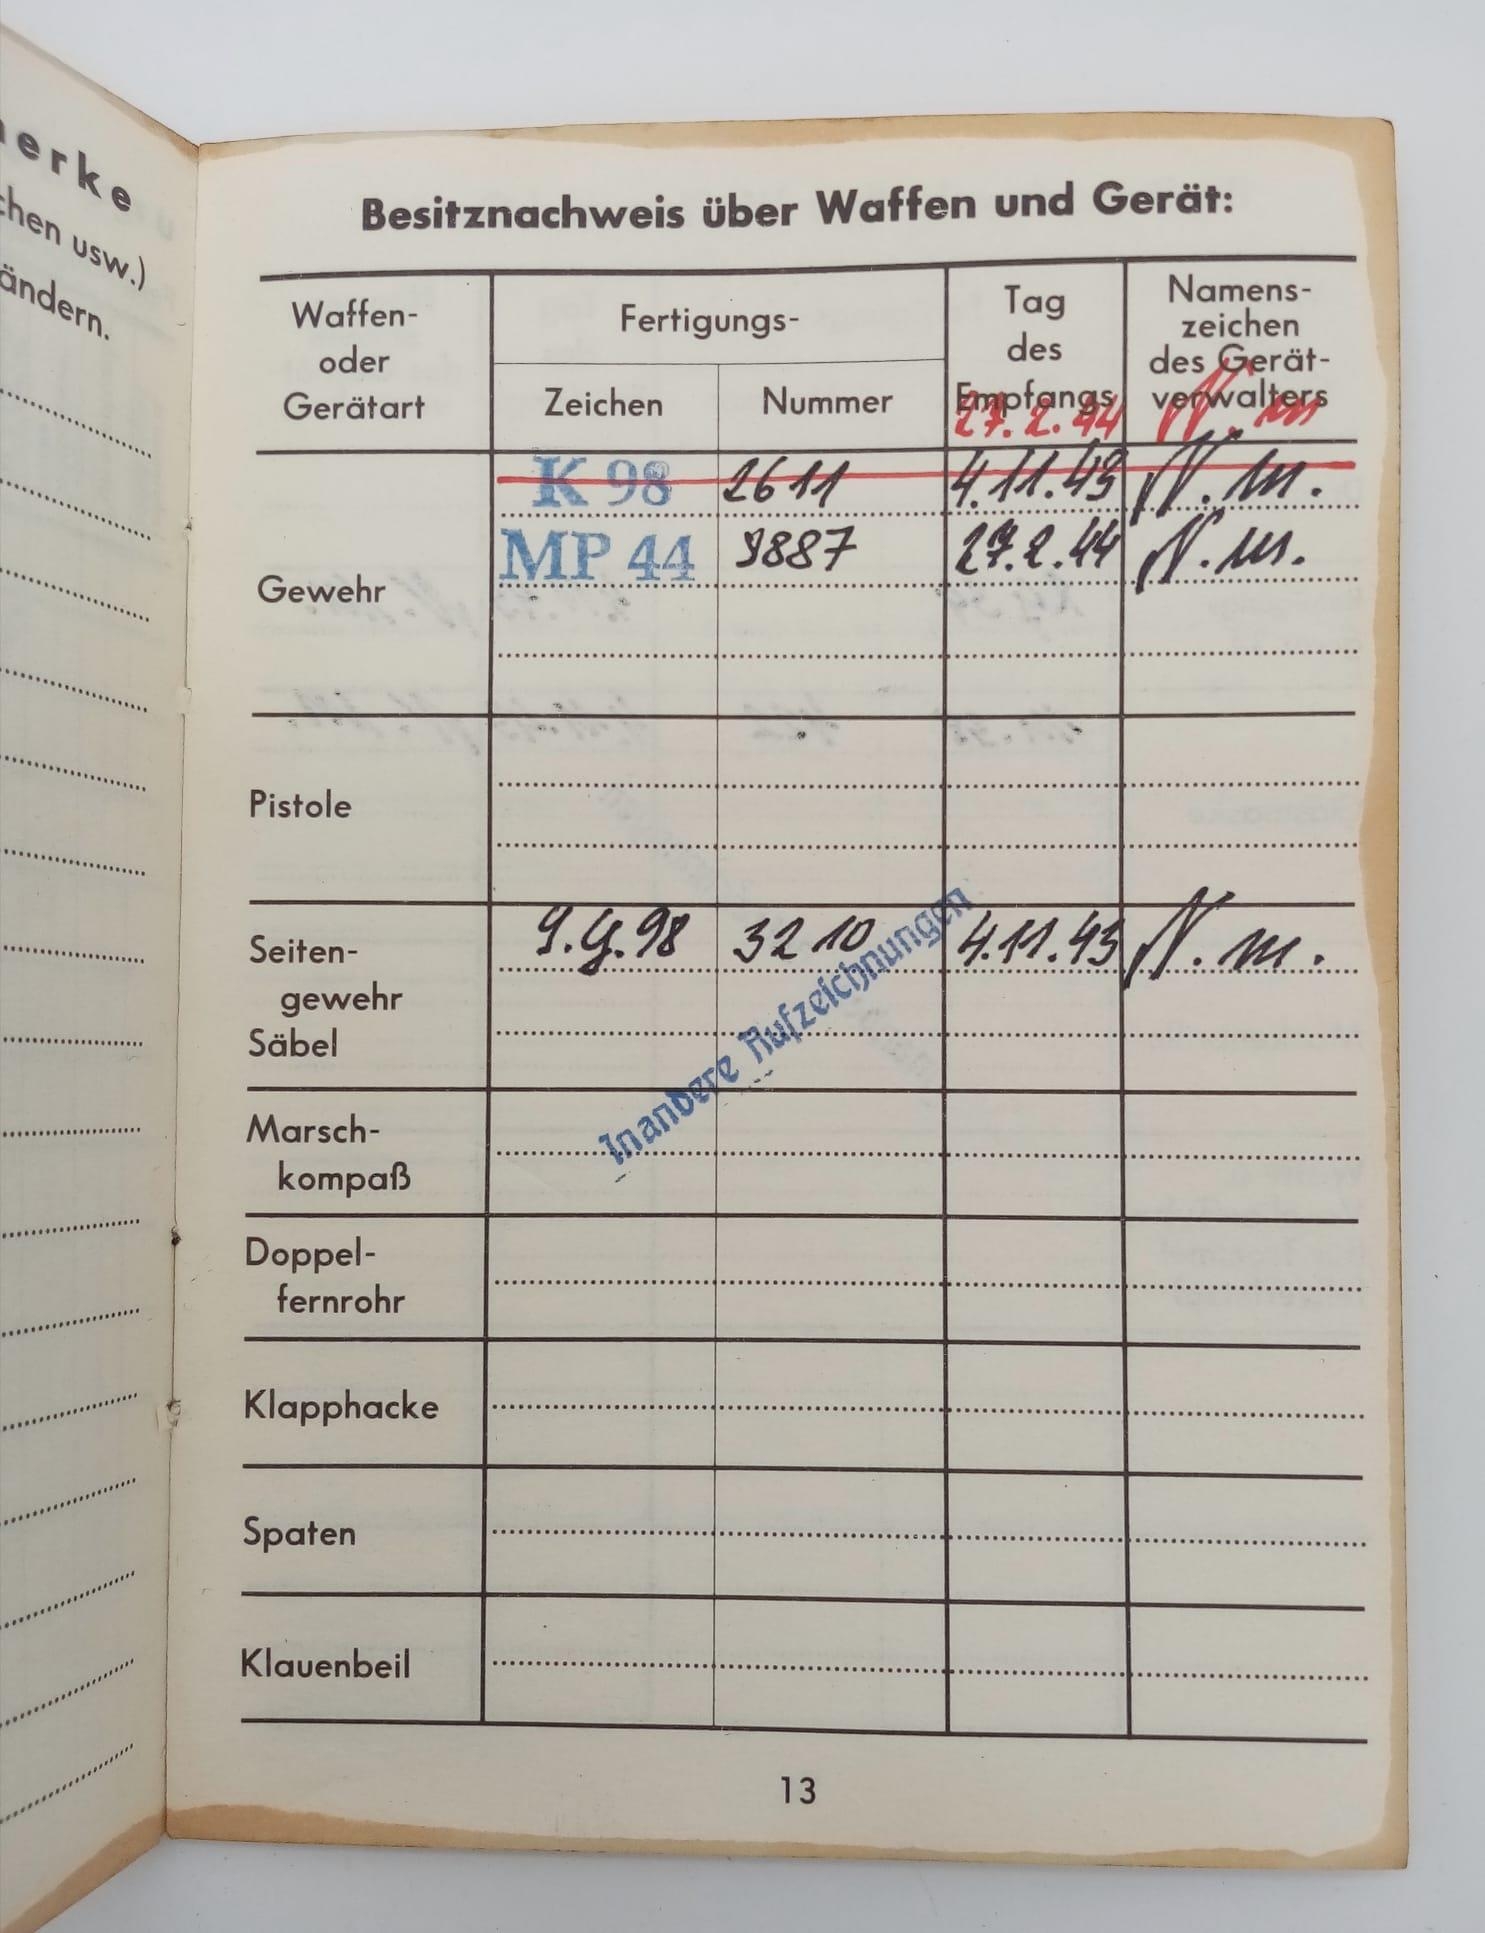 erke
chen usw.)
ändern.
Besitznachweis über Waffen und Gerät:
Waffen-
oder
Gerätart
Fertigungs-
Zeichen
Nummer
Tag
des
Empfangs
27.2.44
Namens-
zeichen
des Gerät-
verwalters
N. m
Gewehr
K 98 2611 4.11.43 N. m.
MP 44 9887 27.2.44 N. m.
Pistole
Seiten-
gewehr
Säbel
S.G.98 3210 4.11.43 N. m.
In andere Aufzeichnungen
Marsch-
kompaß
Doppel-
fernrohr
Klapphacke
Spaten
Klauenbeil
13